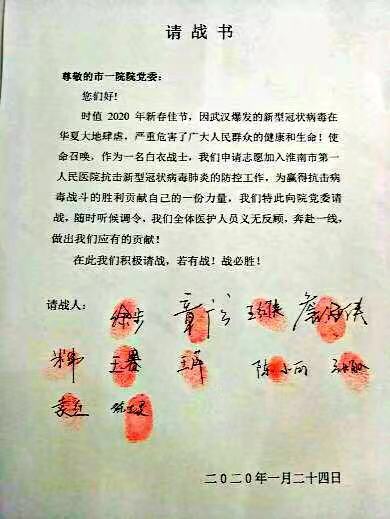 请战书
尊敬的市一院院党委：
您们好！
时值 2020 年新春佳节，因武汉爆发的新型冠状病毒在
华夏大地肆虐，严重危害了广大人民群众的健康和生命！使
命召唤，作为一名白衣战士，我们申请志愿加入淮南市第一
人民医院抗击新型冠状病毒肺炎的防控工作，为赢得抗击病
毒战斗的胜利贡献自己的一份力量，我们特此向院党委请
战，随时听候调令，我们全体医护人员义无反顾，奔赴一线，
做出我们应有的贡献！
在此我们积极请战，若有战！战必胜！
请战人：
陈小丽
二〇二〇年一月二十四日